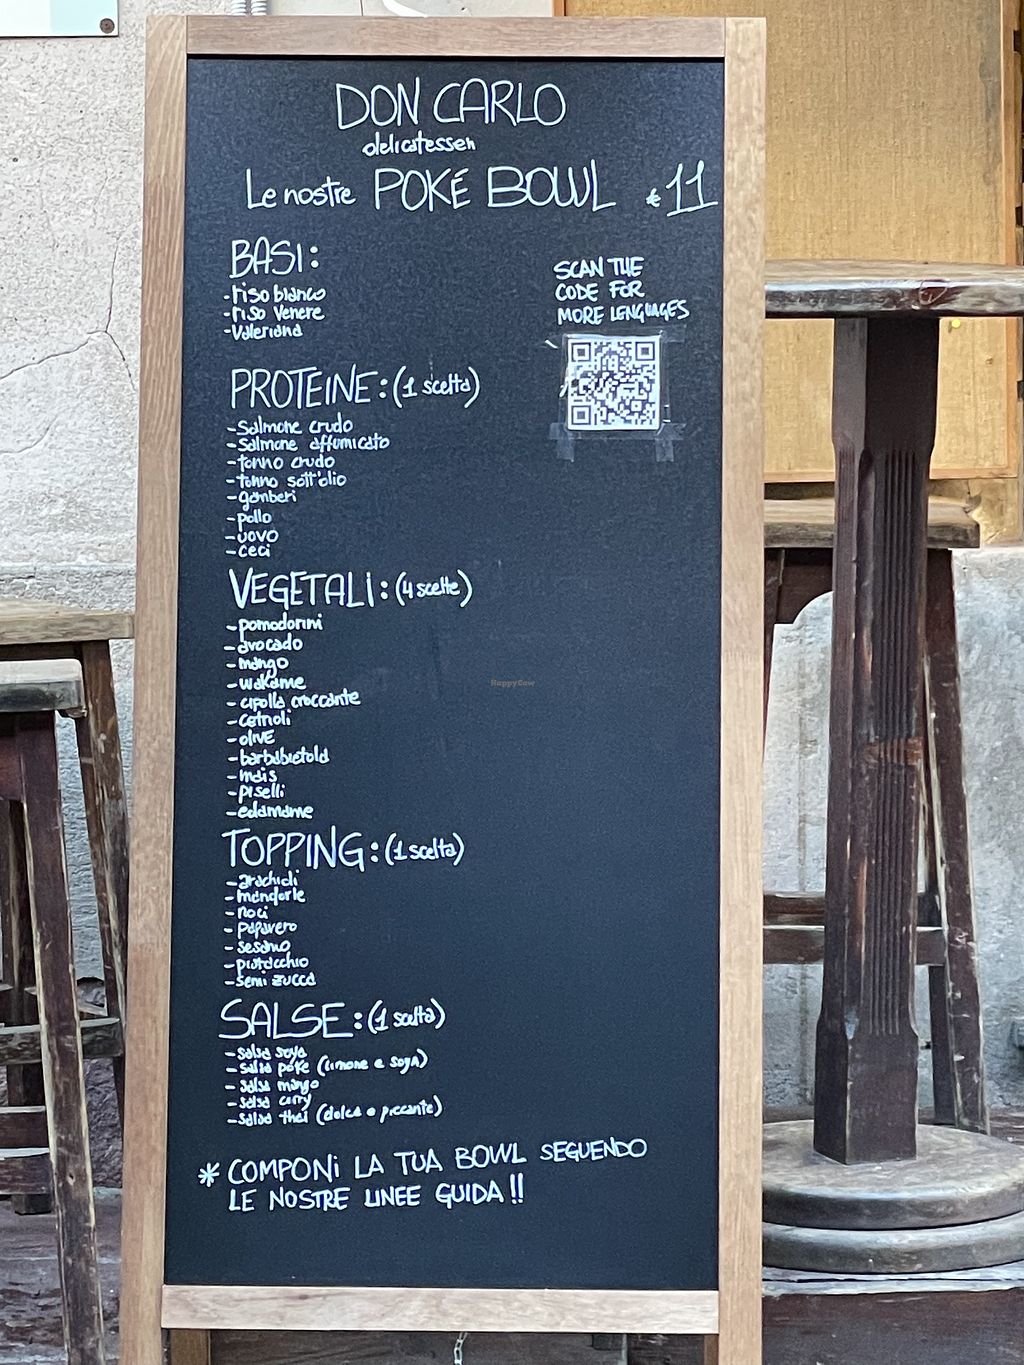 DON CARLO
delicatessen
Le nostre POKÉ BOWL € 11
BASI:
- riso bianco
- riso Venere
- Valeriana
SCAN THE
CODE FOR
MORE LENGUAGES
PROTEINE: (1 scelta)
- Salmone crudo
- Salmone affumicato
- tonno crudo
- tonno sott'olio
- gamberi
- pollo
- uovo
- ceci
VEGETALI: (4 scelte)
- pomodorini
- avocado
- mango
- wakame
- cipolla croccante
- cetrioli
- olive
- barbabietola
- mais
- piselli
- edamame
HappyCow
TOPPING: (1 scelta)
- arachidi
- mandorle
- noci
- papavero
- sesamo
- pistacchio
- semi zucca
SALSE: (1 scelta)
- salsa soya
- salsa poke (limone e soya)
- salsa mango
- salsa curry
- salsa thai (dolce o piccante)
* COMPONI LA TUA BOWL SEGUENDO
LE NOSTRE LINEE GUIDA!!